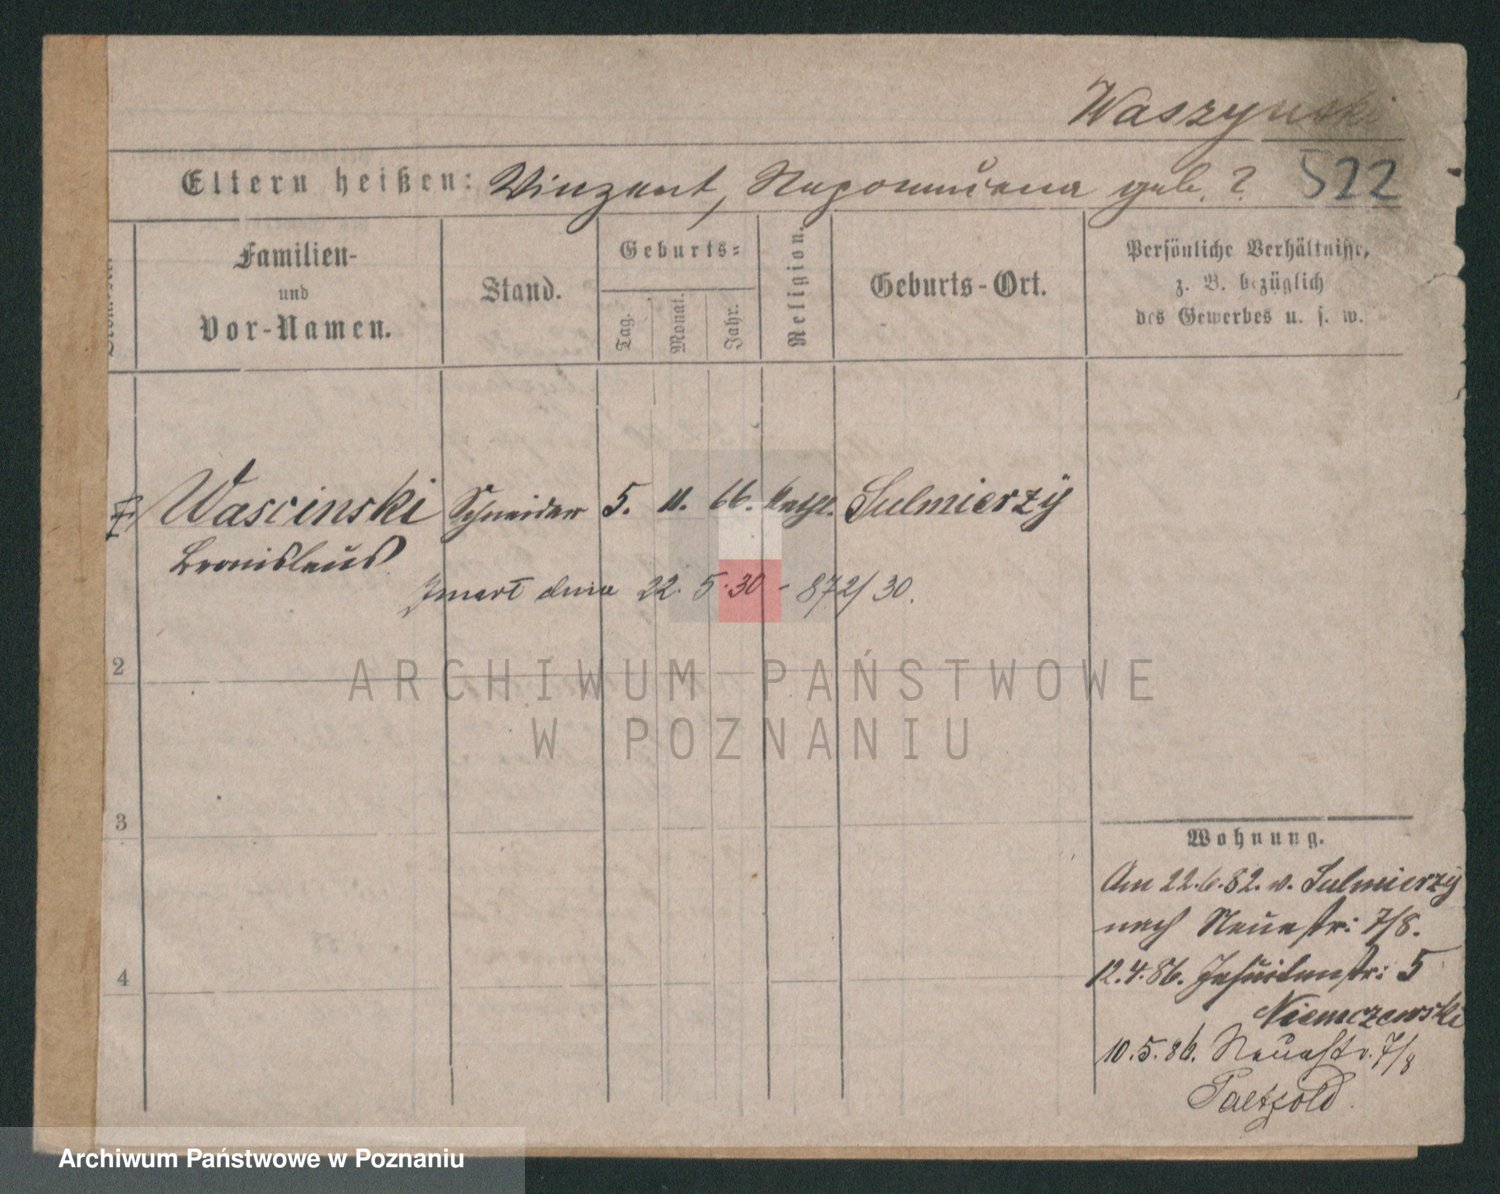 Waszynski
Eltern heißen: Vinzent, Nepomucena geb. ?
522
Familien-
und
Vor-Namen.
Stand.
Geburts-
Tag.
Monat.
Jahr.
Religion.
Geburts-Ort.
Persönliche Verhältnisse,
z. B. bezüglich
des Gewerbes u. s. w.
Wascinski Schneider 5. 11. 66. kath. Sulmierzÿ
Bronislaus
Zmarł dnia 22. 5. 30 - 872/30.
2
ARCHIWUM PAŃSTWOWE
W POZNANIU
3
Wohnung.
Am 22.6.82. v. Sulmierzÿ
nach Neuestr: 7/8.
4
12.4.86. Jesuitenstr: 5
Niemczewski
10.5.86. Neuestr. 7/8
Paetzold
Archiwum Państwowe w Poznaniu